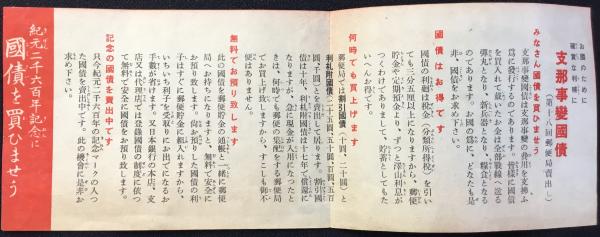 お國のために
確實な利殖に
支那事變國債
(第十八回郵便局賣出し)
みなさん國債を買ひませう
支那事變國債は支那事變の費用を支拂ふ
爲に發行するのであります。皆樣に國債
を買入れて戴いたお金は全部戰線へ送る
彈丸となり、新兵器となり、糧食となる
のであります。お國の爲に、どなたも是
非、國債をお求め下さい。
國債はお得です
國債の利廻は税金(分類所得税)を引い
ても三分五厘以上になりますから、郵便
貯金や定期預金より、ずつと澤山利息が
つくわけでありまして、貯蓄としてもた
いへんお得です。
何時でも買上げます
郵便局では割引國債(十圓、二十圓)と
利札附國債(二十五圓、五十圓、百圓、五百
圓、千圓)とを賣出して居ります。割引國
債は十年、利札附國債は十七年で償還に
なりますが、急に現金が入用になつたと
きは、何時でも郵便の集配をする郵便局
でお買上げ致しますから、すこしも御不
便はありません。
無料でお預り致します
此の國債を郵便貯金の通帳と一緒に郵便
局へお持ちになりますと、無料で安全に
お預り致します。尚お預りした國債の利
子はすぐに郵便貯金に組入れますから、
いちいち利子を受取りにお出でになるお
手數が省けます。又日本銀行の本店、支
店又は代理店では登録國債の制度に依つ
て無料で安全に國債をお預り致します。
記念の國債を賣出中です
只今紀元二千六百年の記念マークの入つ
た國債を賣出中です。此の機會に是非お
求め下さい。
紀元二千六百年記念に
國債を買ひませう